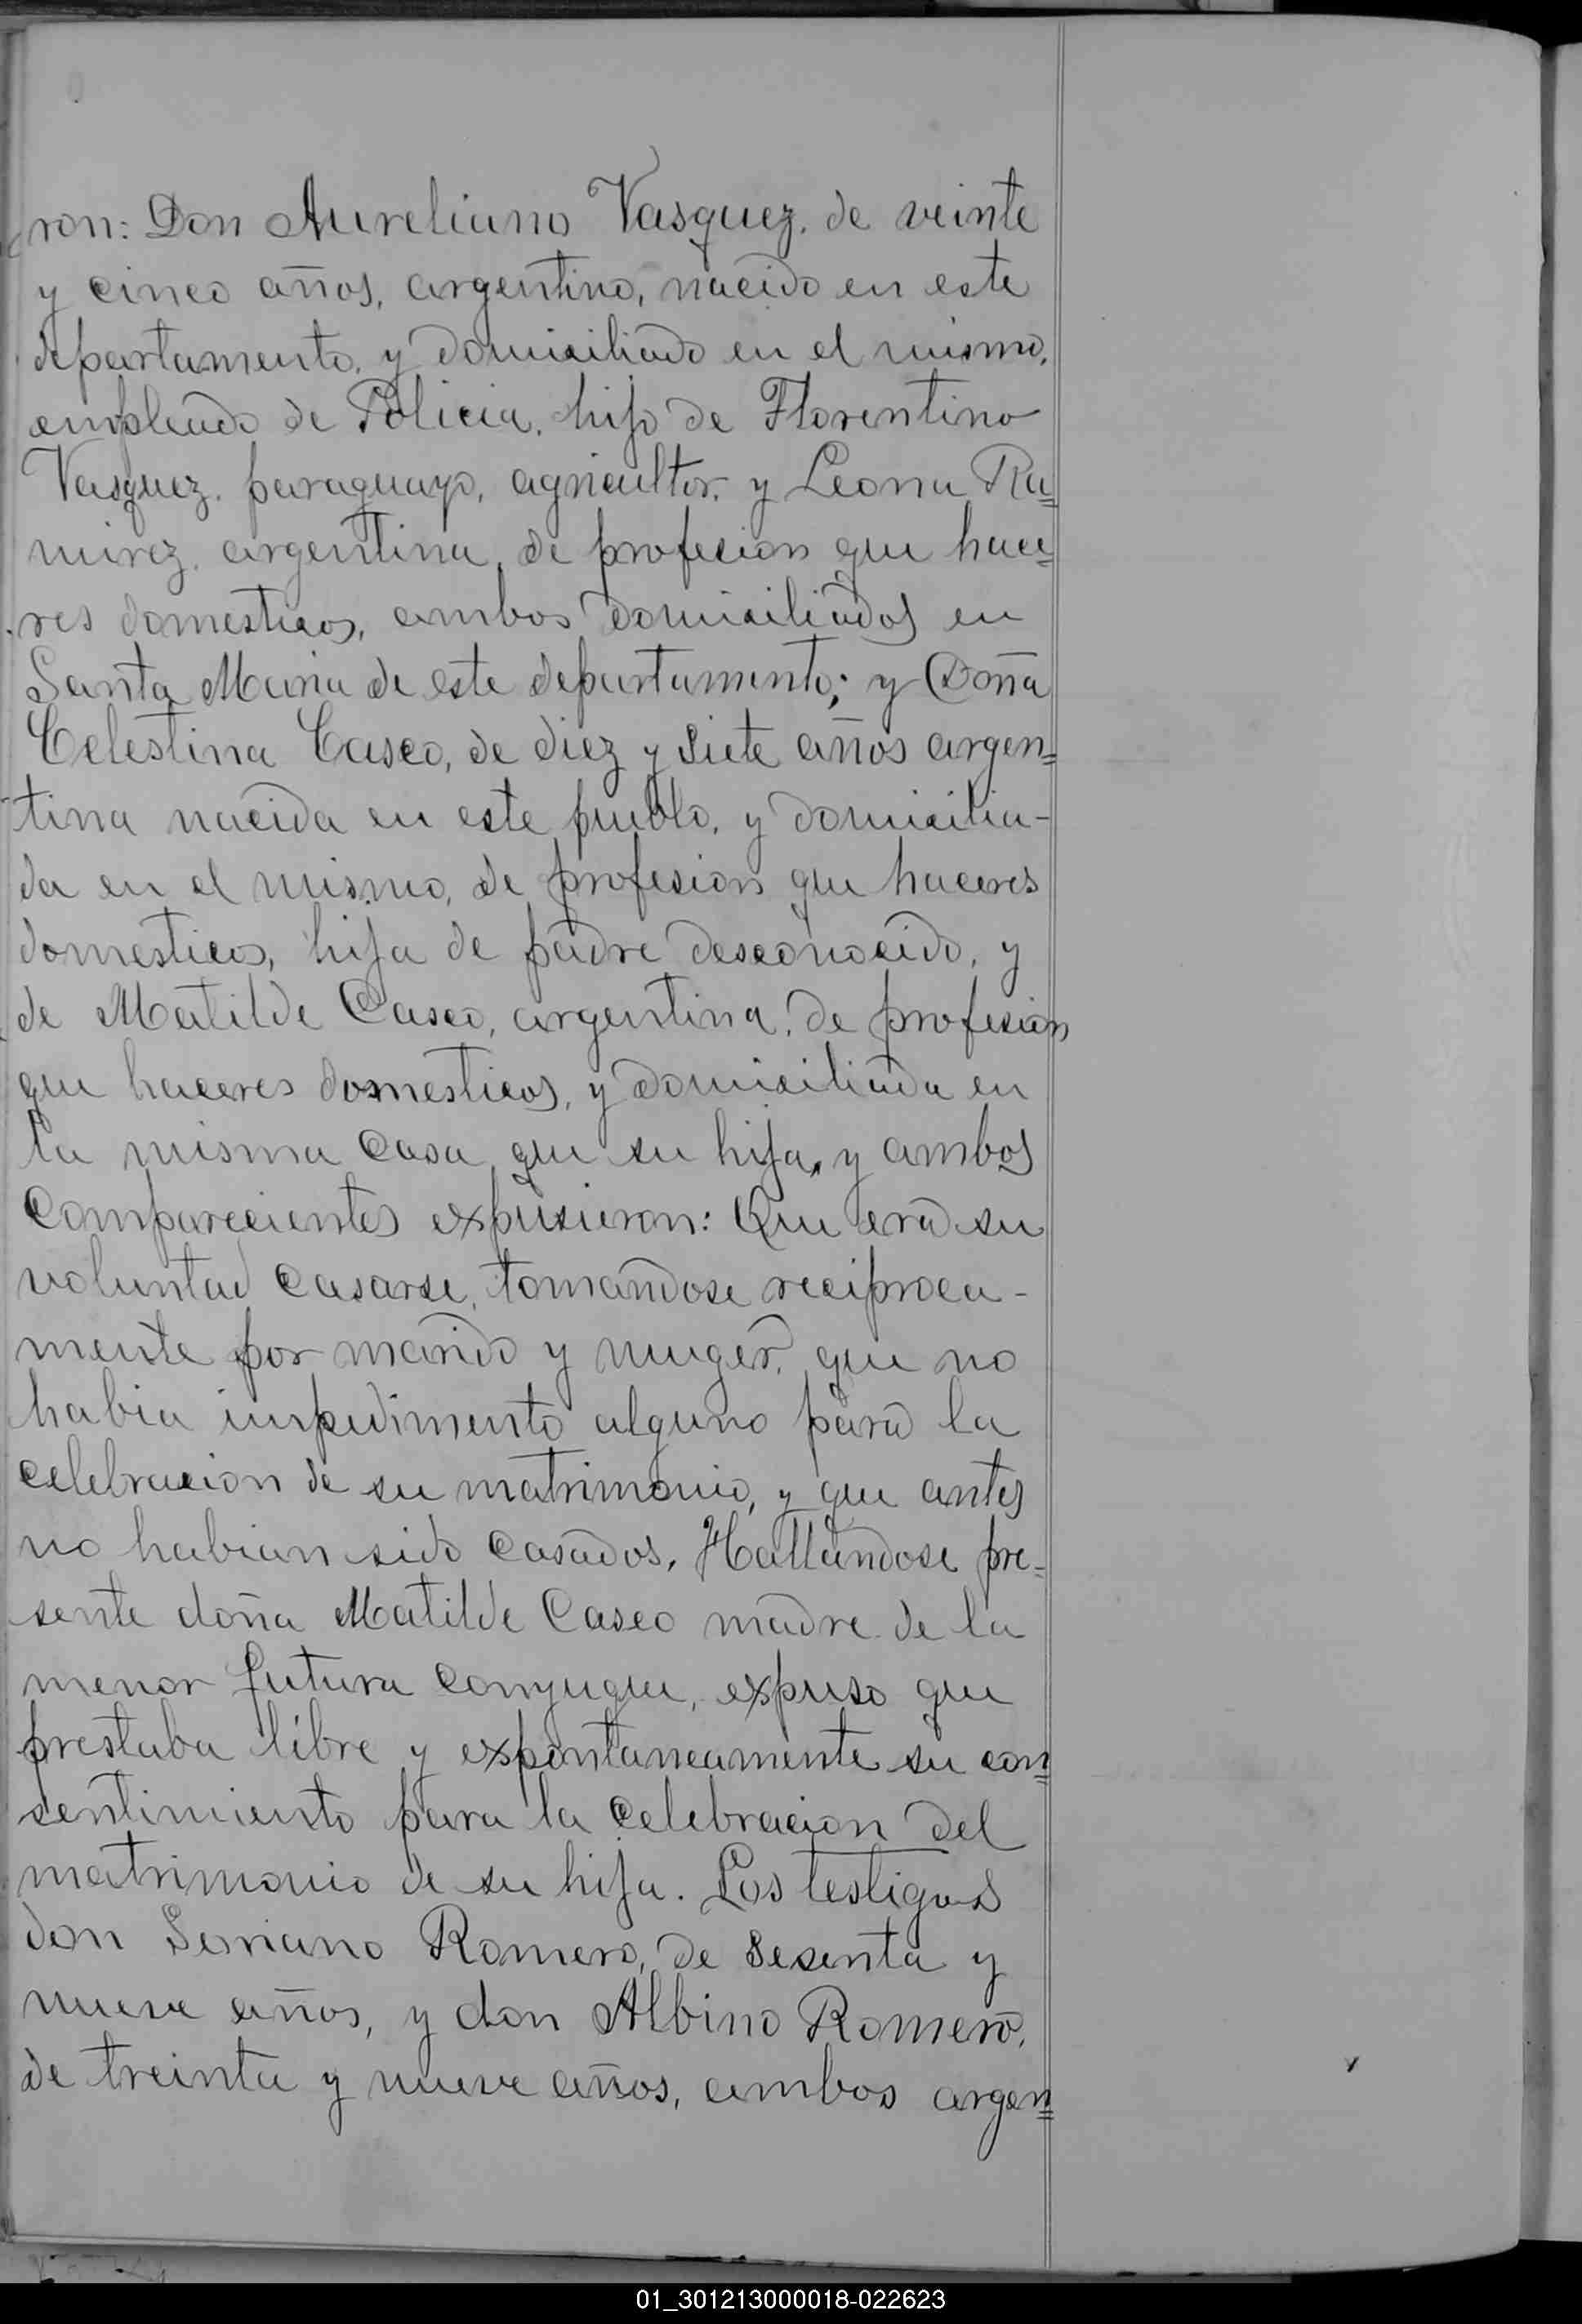 ron: Don Aureliano Vasquez, de veinte
y cinco años, argentino, nacido en este
departamento, y domiciliado en el mismo,
empleado de Policia, hijo de Florentino
Vasquez, paraguayo, agricultor, y Leona Ra=
mirez, argentina, de profesion que hace=
res domesticos, ambos domiciliados en
Santa Maria de este departamento; y Doña
Celestina Casco, de diez y siete años argen=
tina nacida en este pueblo, y domicilia-
da en el mismo, de profesion que haceres
domesticos, hija de padre desconocido, y
de Matilde Casco, argentina, de profesion
que haceres domesticos, y domiciliada en
la misma casa que su hija, y ambos
comparecientes expusieron: Que era su
voluntad casarse, tomandose reciproca-
mente por marido y muger, que no
habia impedimento alguno para la
celebracion de su matrimonio, y que antes
no habian sido casados. Hallandose pre=
sente doña Matilde Casco madre de la
menor futura conyugue, expuso que
prestaba libre y expontaneamente su con=
sentimiento para la celebracion del
matrimonio de su hija. Los testigos
don Soriano Romero, de sesenta y
nueve años, y don Albino Romero,
de treinta y nueve años, ambos argen=
01_301213000018-022623